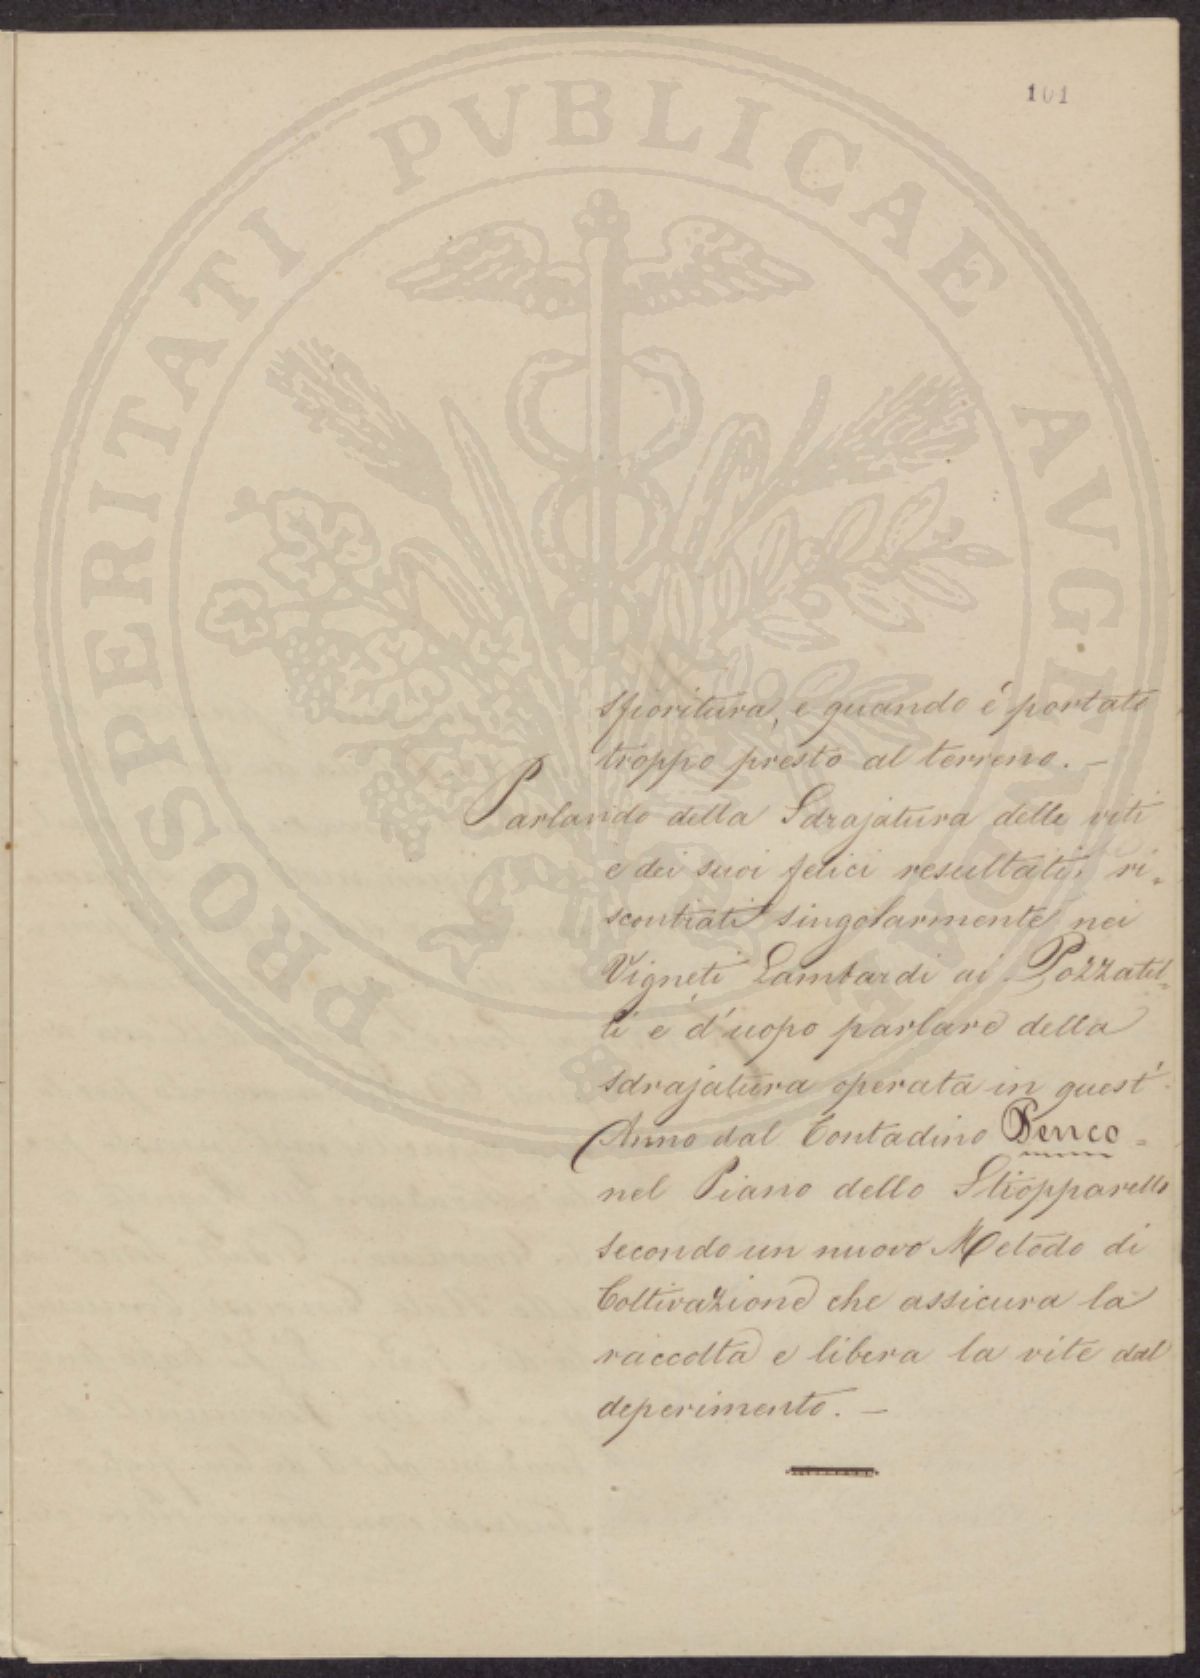 101
PROSPERITATI PVBLICAE AVGENDAE
sfioritura, e quando é portato
troppo presto al terreno. –
Parlando della Sdrajatura delle viti
e dei suoi felici resultati, ri-
scontrati singolarmente nei
Vigneti Lambardi ai Pozzatel-
li e d'uopo parlare della
sdrajatura operata in quest'
Anno dal Contadino Penco
nel Piano dello Stiopparello
secondo un nuovo Metodo di
Coltivazione che assicura la
raccolta e libera la vite dal
deperimento. –